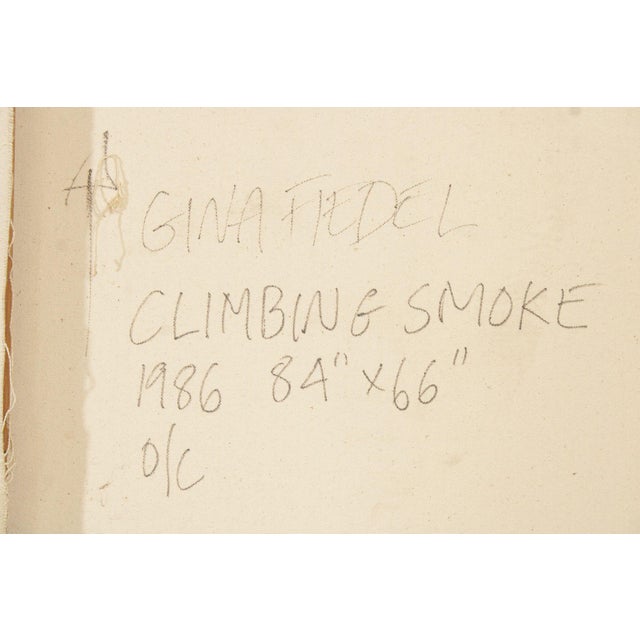 GINA FIEDEL
CLIMBING SMOKE
1986 84" x 66"
O/C